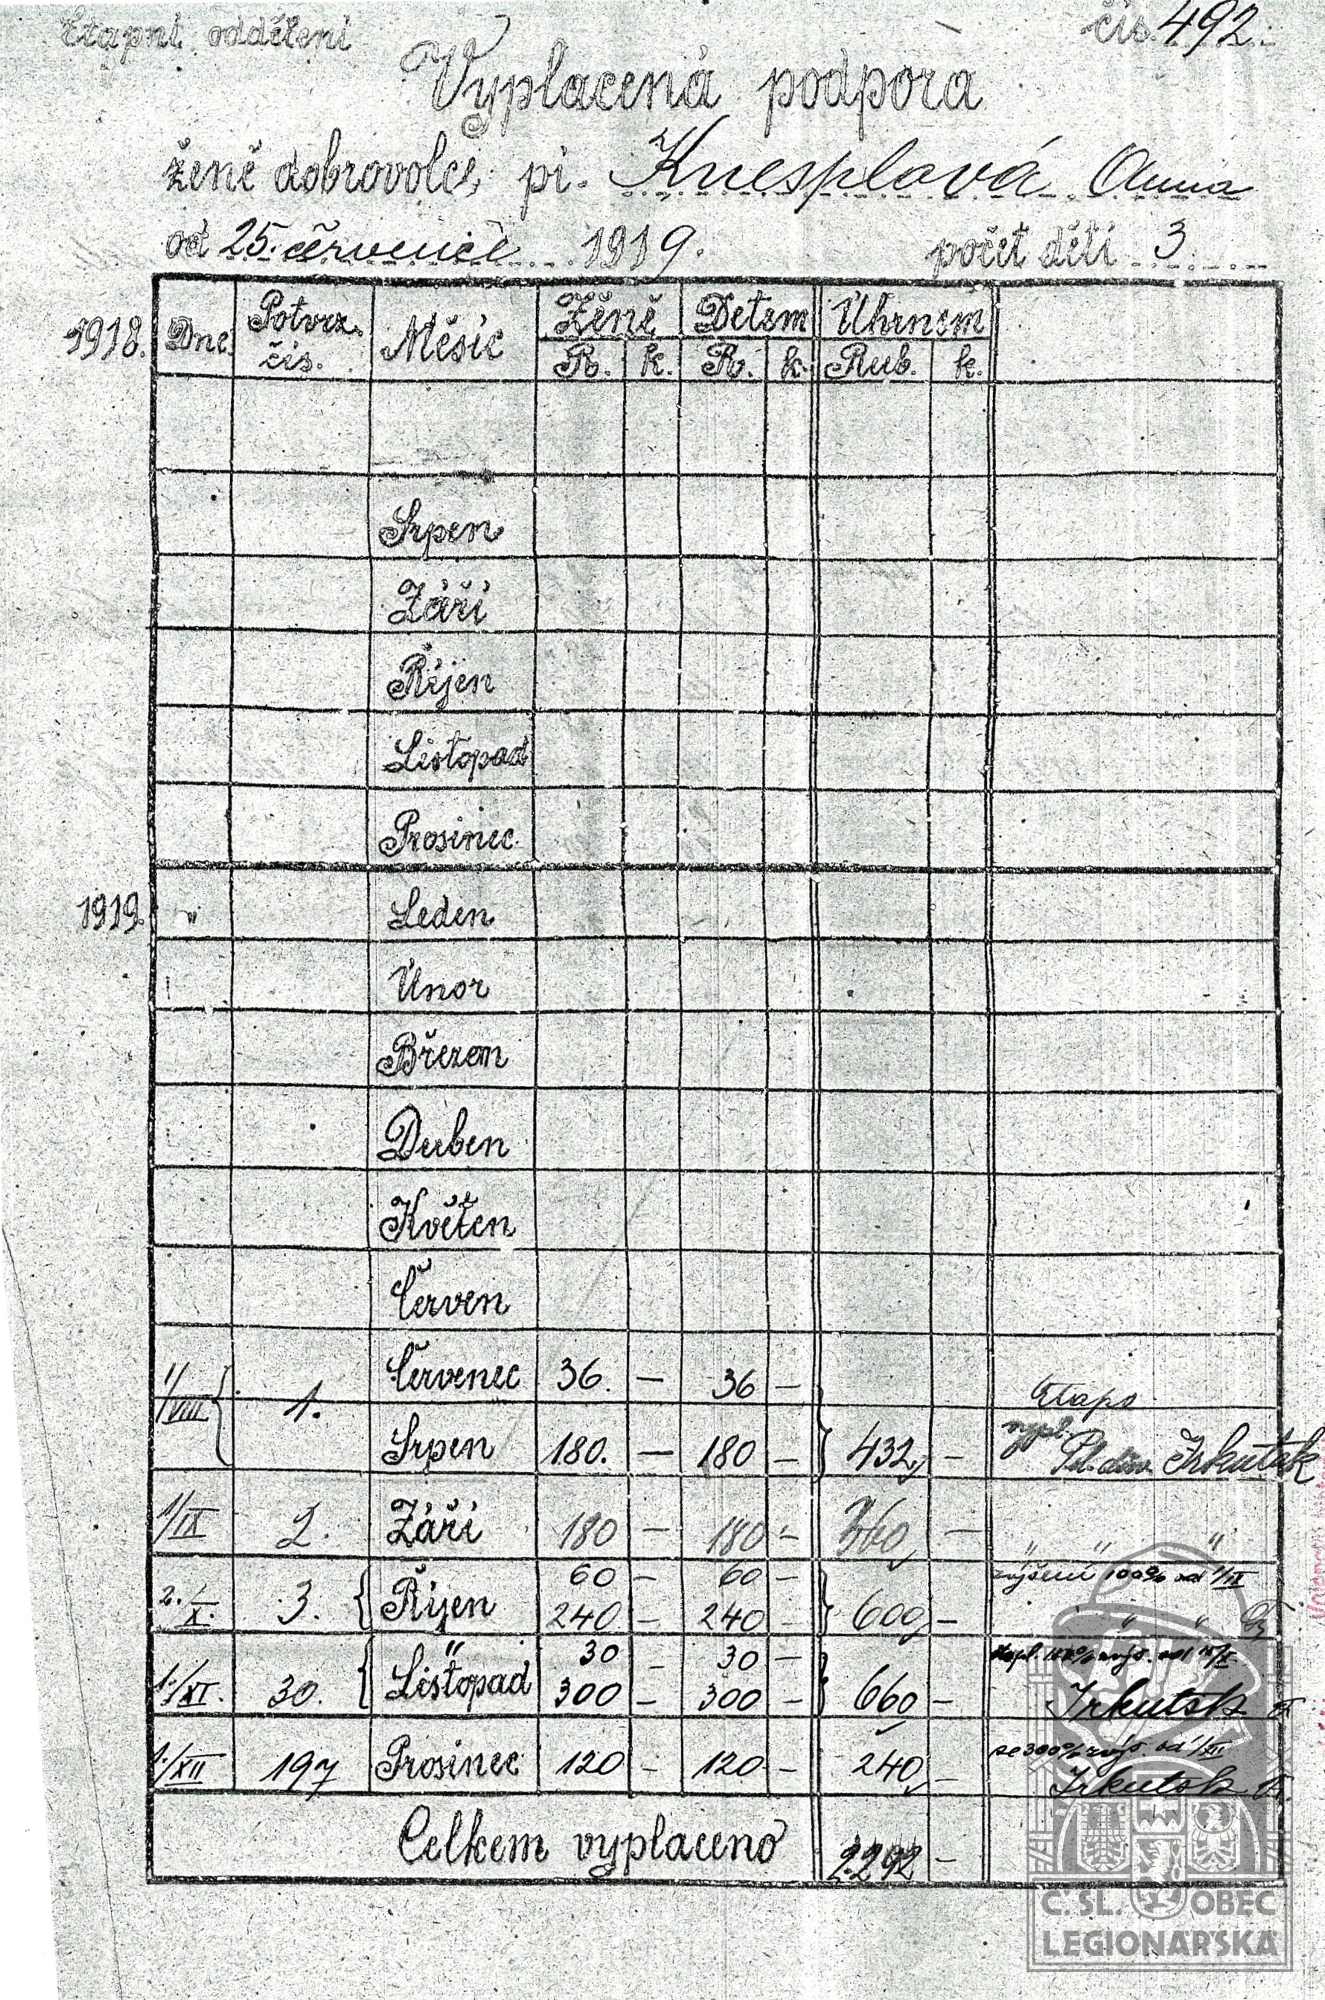 Etapní oddělení čís. 492.
Vyplacená podpora
ženě dobrovolce, pí. Knesplová Anna
od 25. července 1919. počet dětí 3
1918. Dne Potvrz. čís. Měsíc Ženě Dětem Úhrnem
R. k. R. k. Rub. k.
Srpen
Září
Říjen
Listopad
Prosinec
1919. " Leden
Únor
Březen
Duben
Květen
Červen
Červenec 36. — 36 —
1/VIII 1. Etapo
Srpen 180. — 180 — 432 — vypl. Irkutsk
1/IX 2. Září 180 — 180 — 360 — " " "
60 — 60 — zvýšení 100% od 1/IX
2./X. 3. Říjen 240 — 240 — 600 — " "
30 — 30 —
1./XI. 30. Listopad 300 — 300 — 660 — Irkutsk
1./XII 197 Prosinec 120 — 120 — 240 — se 300% zvýš. od 1/XII
Irkutsk
Celkem vyplaceno 2292 —
Č. SL. OBEC
LEGIONÁŘSKÁ